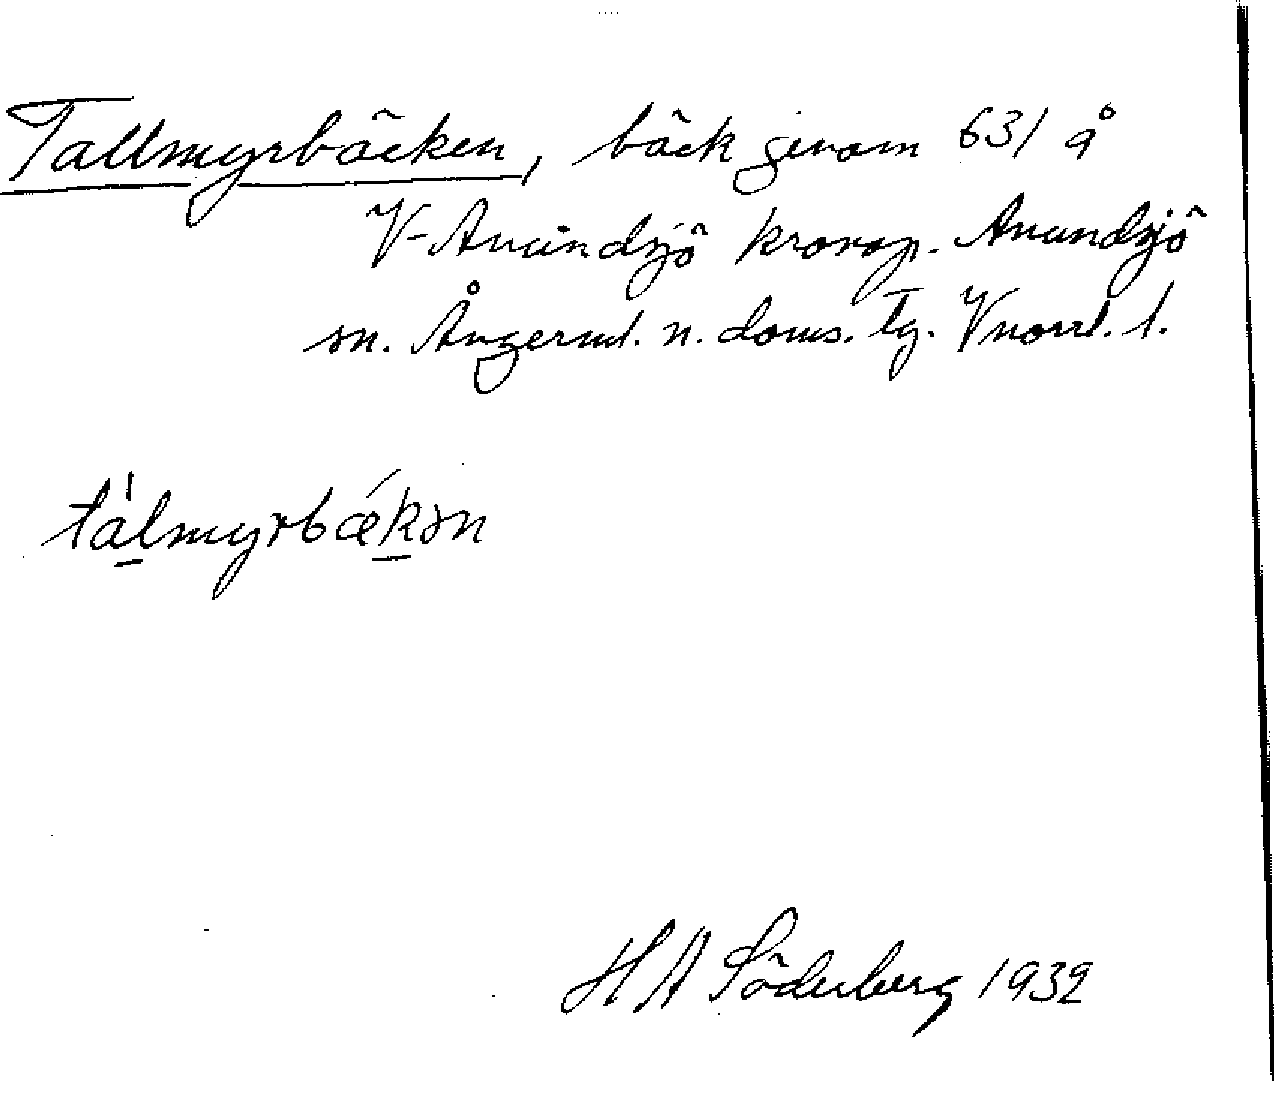 Tallmyrbäcken, bäck genom 631 å
V-Anundsjö kronop. Anundsjö
sn. Ångerml. n. doms. tg. Vnorrl. l.
tálmyrbǽkən
H A Söderberg 1932